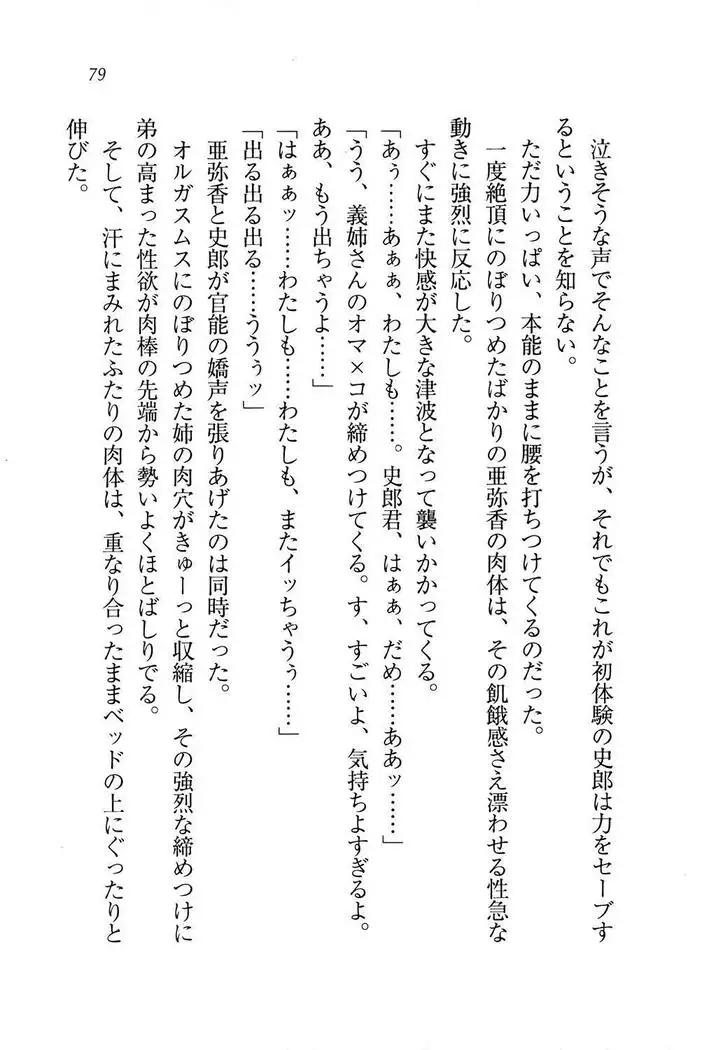 79
泣きそうな声でそんなことを言うが、それでもこれが初体験の史郎は力をセーブす
るということを知らない。
ただ力いっぱい、本能のままに腰を打ちつけてくるのだった。
一度絶頂にのぼりつめたばかりの亜弥香の肉体は、その飢餓感さえ漂わせる性急な
動きに強烈に反応した。
すぐにまた快感が大きな津波となって襲いかかってくる。
「あぅ……あぁぁ、わたしも……。史郎君、はぁぁ、だめ……ああッ……」
「うう、義姉さんのオマ×コが締めつけてくる。す、すごいよ、気持ちよすぎるよ。
ああ、もう出ちゃうよ……」
「はぁぁッ……わたしも……わたしも、またイッちゃうぅ……」
「出る出る出る……ううぅッ」
亜弥香と史郎が官能の嬌声を張りあげたのは同時だった。
オルガスムスにのぼりつめた姉の肉穴がきゅーっと収縮し、その強烈な締めつけに
弟の高まった性欲が肉棒の先端から勢いよくほとばしりでる。
そして、汗にまみれたふたりの肉体は、重なり合ったままベッドの上にぐったりと
伸びた。